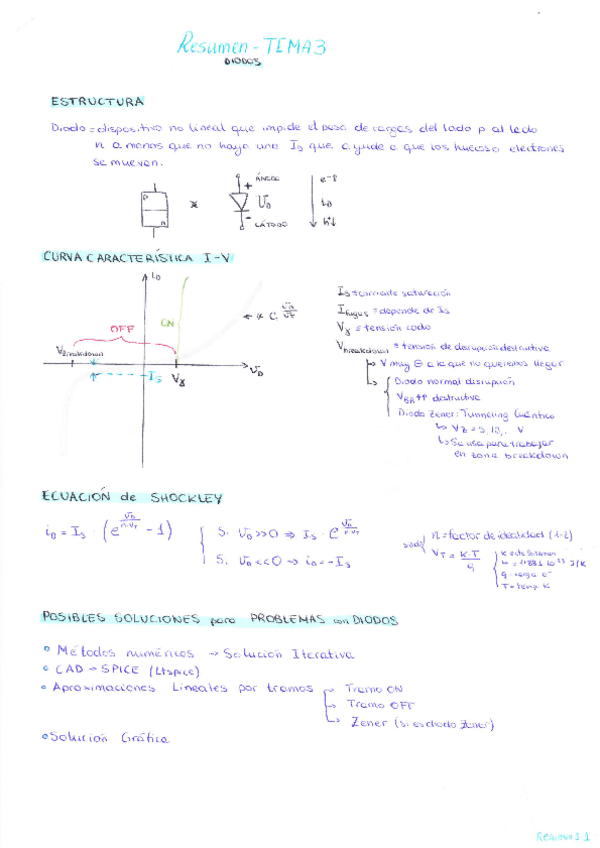 Resumen - TEMA3
DIODOS
ESTRUCTURA
Diodo = dispositivo no lineal que impide el paso de cargas del lado p al lado
n a menos que no haya una Is que ayude a que los huecos o electrones
se muevan.
P
N
*
+ ÁNODO
UD
- CÁTODO
e-↑
iD
h+↓
CURVA CARACTERÍSTICA I-V
iD
OFF
ON
VBreakdown
Is
Vγ
UD
← α e^(UD/UT)
Is = corriente saturación
Ifugas = depende de Is
Vγ = tensión codo
Vbreakdown = tensión de disrupción destructiva
↳ V muy ⊖ a la que no queremos llegar
↳ Diodo normal disrupción
VBR ↑↑ destructiva
Diodo Zener: Tunneling Cuántico
↳ Vz = 5, 12, .. V
↳ Se usa para trabajar
en zona breakdown
ECUACIÓN de SHOCKLEY
iD = Is · (e^(UD/n·VT) - 1)
Si UD >> 0 ⇒ Is · e^(UD/n·VT)
Si UD << 0 → iD = - Is
n = factor de idealidad (1-2)
VT = K·T/q
q = carga e-
T = temp K
POSIBLES SOLUCIONES para PROBLEMAS con DIODOS
• Métodos numéricos → Solución Iterativa
• CAD → SPICE (Ltspice)
• Aproximaciones Lineales por tramos → Tramo ON
→ Tramo OFF
↳ Zener (si es diodo Zener)
• Solución Gráfica